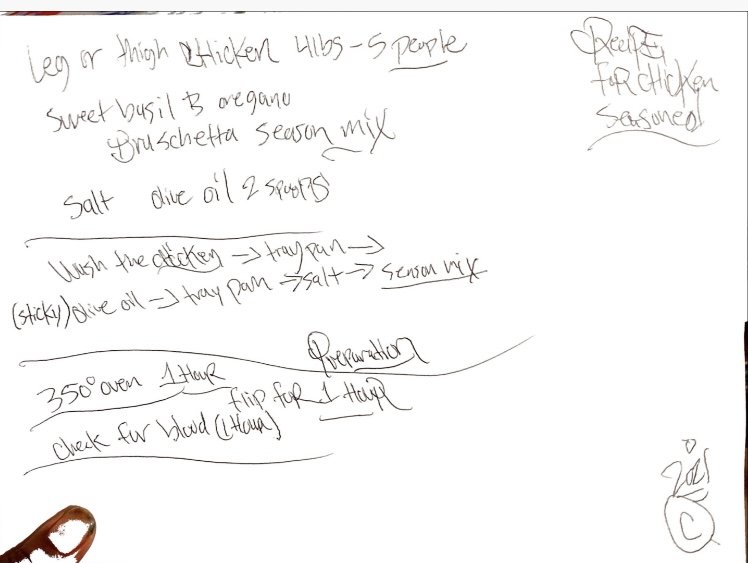 Recipe
For Chicken
Seasoned
Leg or thigh Chicken 4lbs - 5 people
Sweet basil & oregano
Bruschetta season mix
Salt olive oil 2 spoons
Wash the chicken → tray pan →
(sticky) olive oil → tray pan → salt → season mix
Preparation
350° oven 1 Hour
flip for 1 Hour
check for blood (1 Hour)
2021
C